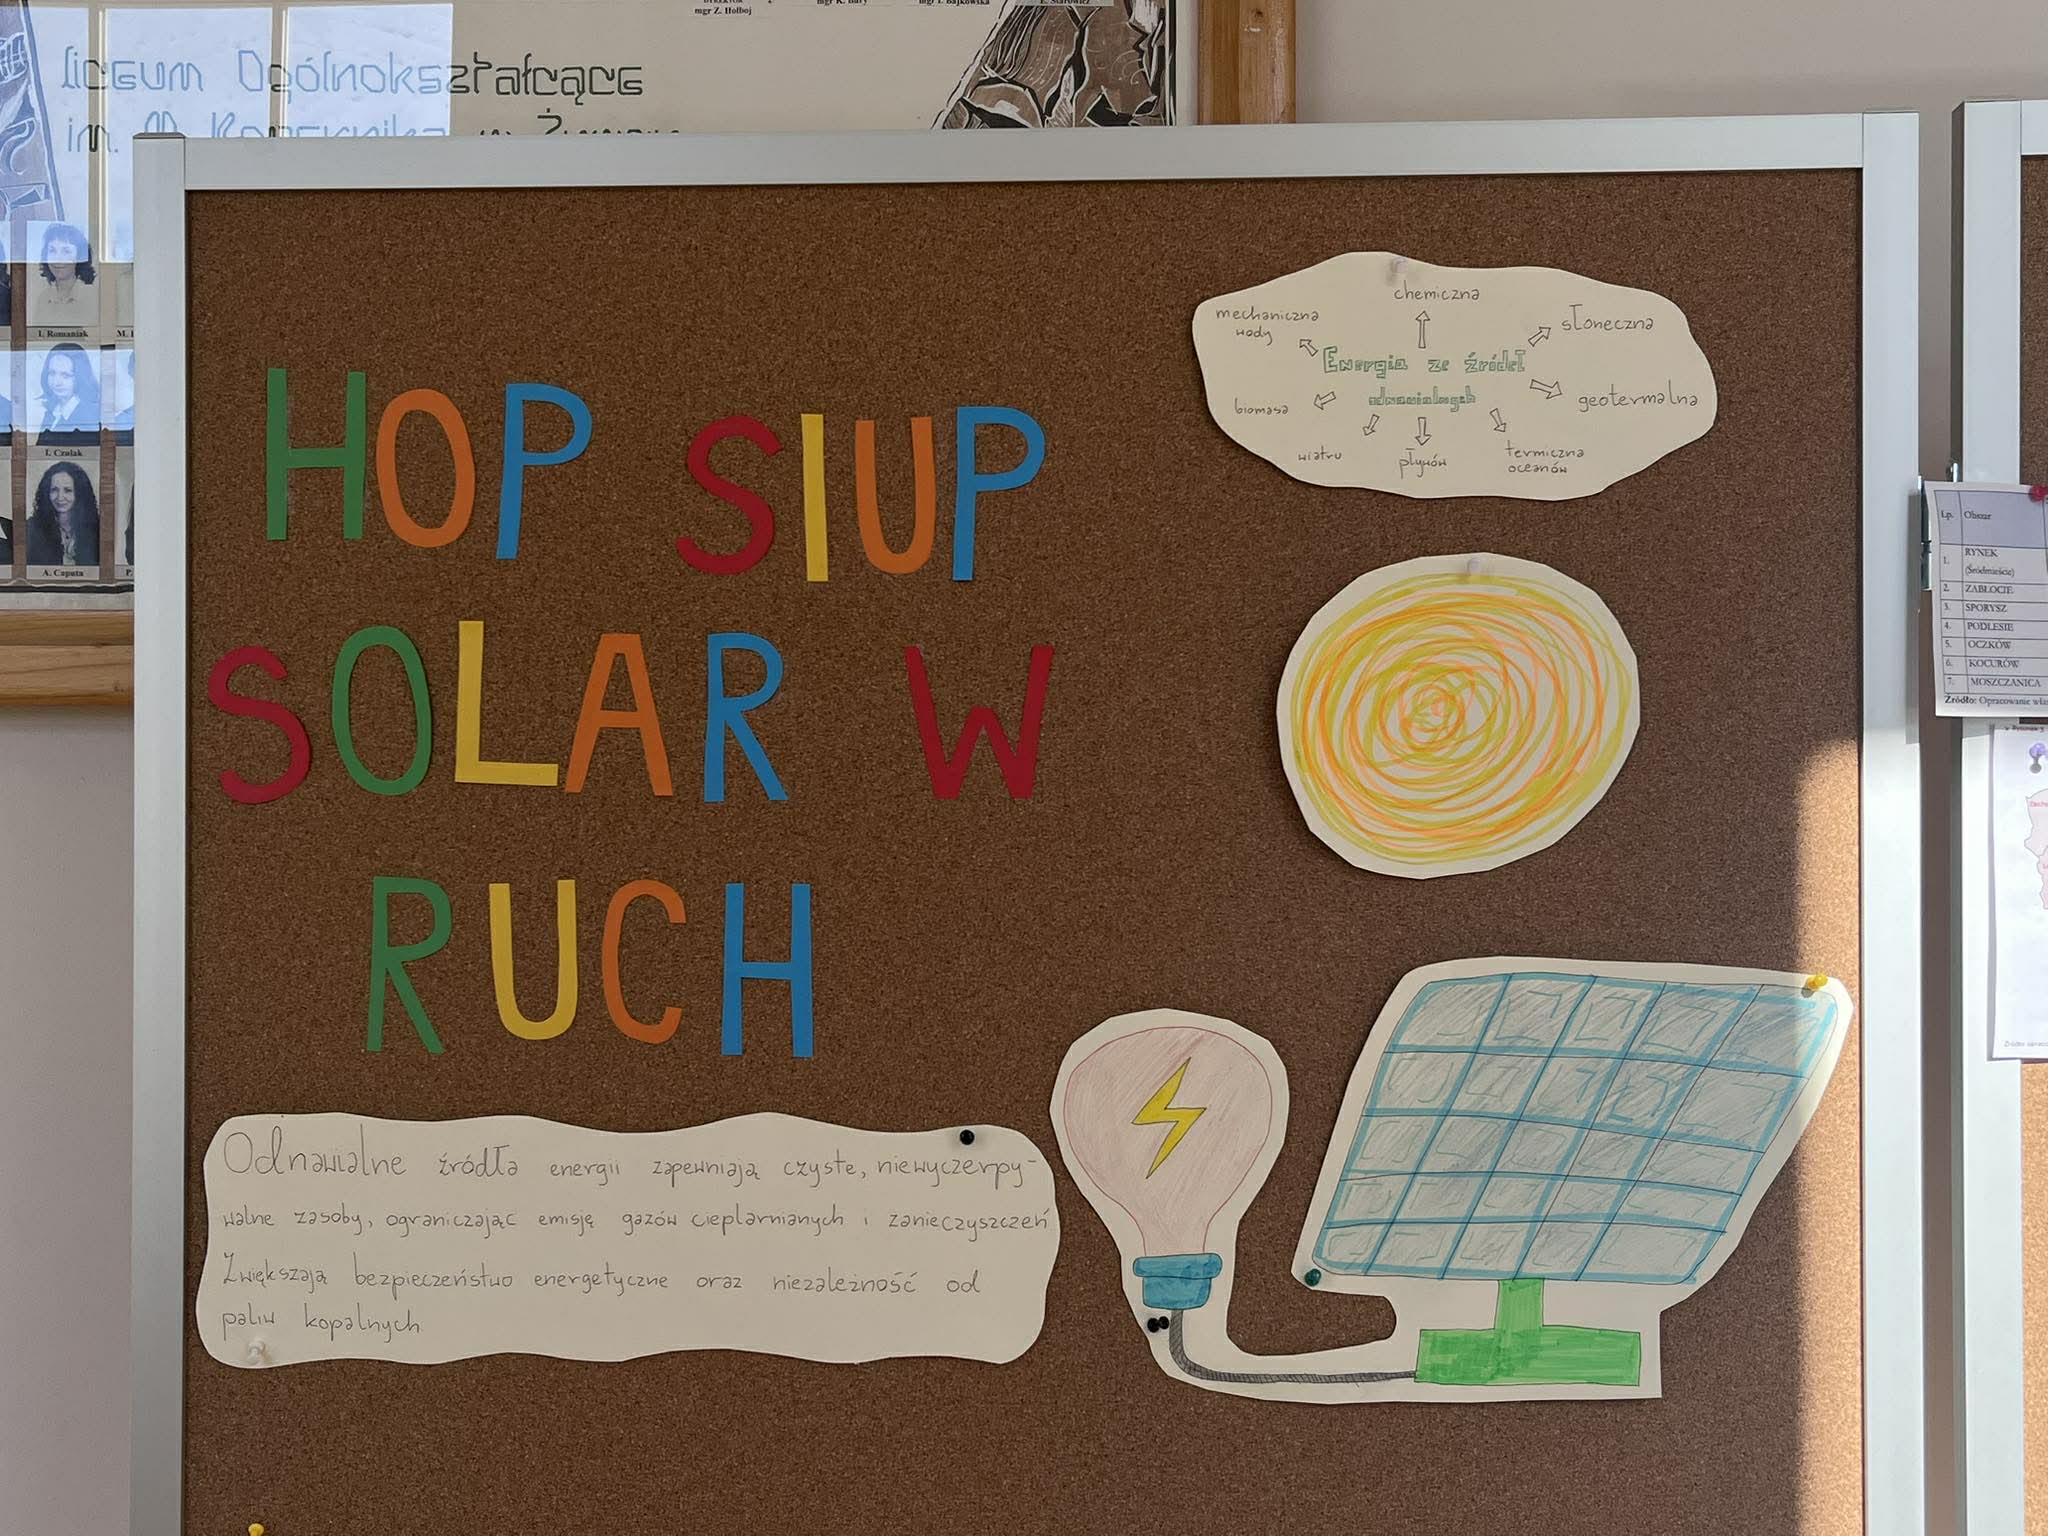 mgr Z. Hołboj
mgr K. Bury
mgr T. Bajkowska
E. Starowicz
Liceum Ogólnokształcące
im. M. Kopernika w Żywcu
I. Romaniak
I. Czulak
A. Caputa
HOP SIUP
SOLAR W
RUCH
chemiczna
mechaniczna
wody
słoneczna
Energia ze źródeł
odnawialnych
biomasa
geotermalna
wiatru
pływów
termiczna
oceanów
Odnawialne źródła energii zapewniają czyste, niewyczerpy-
walne zasoby, ograniczając emisję gazów cieplarnianych i zanieczyszczeń
Zwiększają bezpieczeństwo energetyczne oraz niezależność od
paliw kopalnych
Lp. Obszar
1. RYNEK
(Śródmieście)
2. ZABŁOCIE
3. SPORYSZ
4. PODLESIE
5. OCZKÓW
6. KOCURÓW
7. MOSZCZANICA
Źródło: Opracowanie